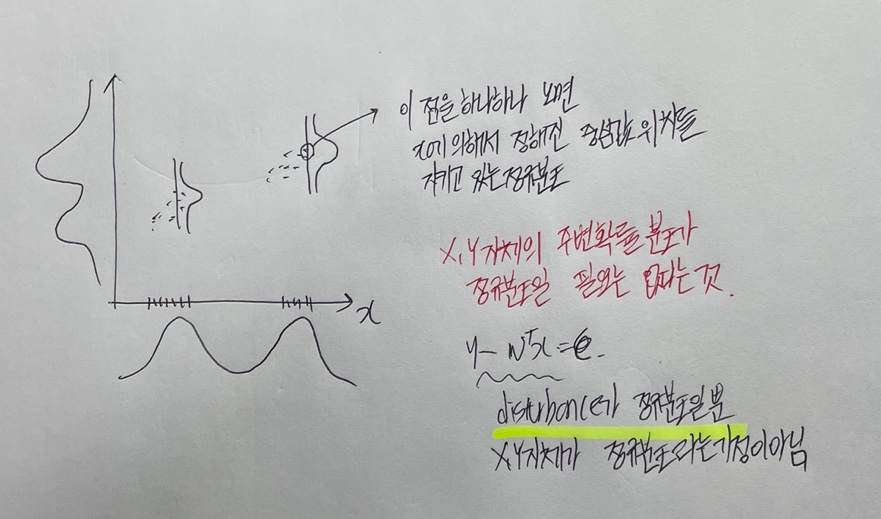 이 점을 하나하나 보면
x에 의해서 정해진 중심값 위치를
지키고 있는 정규분포
X, Y 자체의 주변확률 분포가
정규분포일 필요는 없다는 것.
x
y - wᵀx = e.
disturbance가 정규분포일 뿐
X, Y 자체가 정규분포라는 가정이 아님